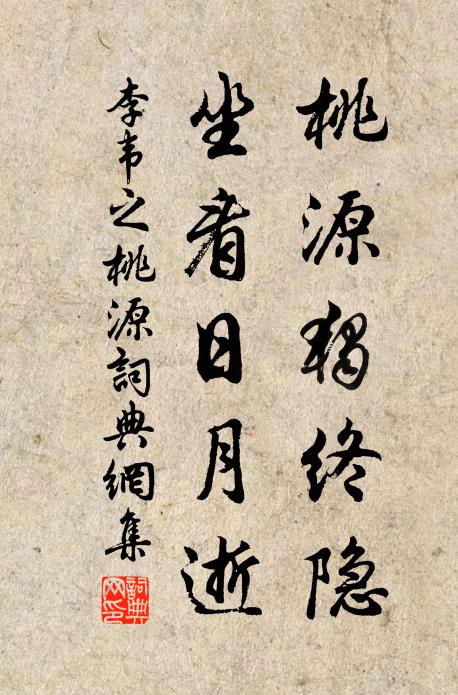 桃源独终隐
坐看日月逝
李韦之桃源詞典網集
詞典網印